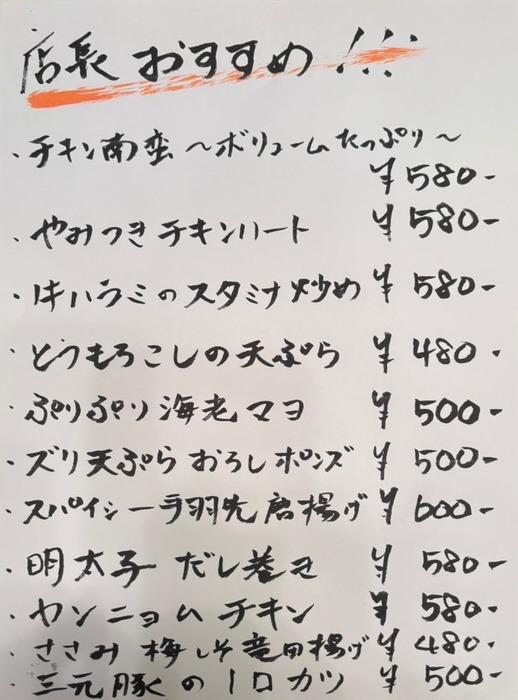 店長おすすめ!!!
・チキン南蛮 ～ボリュームたっぷり～
¥580-
・やみつきチキンハート ¥580-
・牛ハラミのスタミナ炒め ¥580-
・とうもろこしの天ぷら ¥480-
・ぷりぷり海老マヨ ¥500-
・ズリ天ぷらおろしポンズ ¥500-
・スパイシー手羽先唐揚げ ¥600-
・明太子だし巻き ¥580-
・ヤンニョムチキン ¥580-
・ささみ梅しそ竜田揚げ ¥480-
・三元豚の一口カツ ¥500-